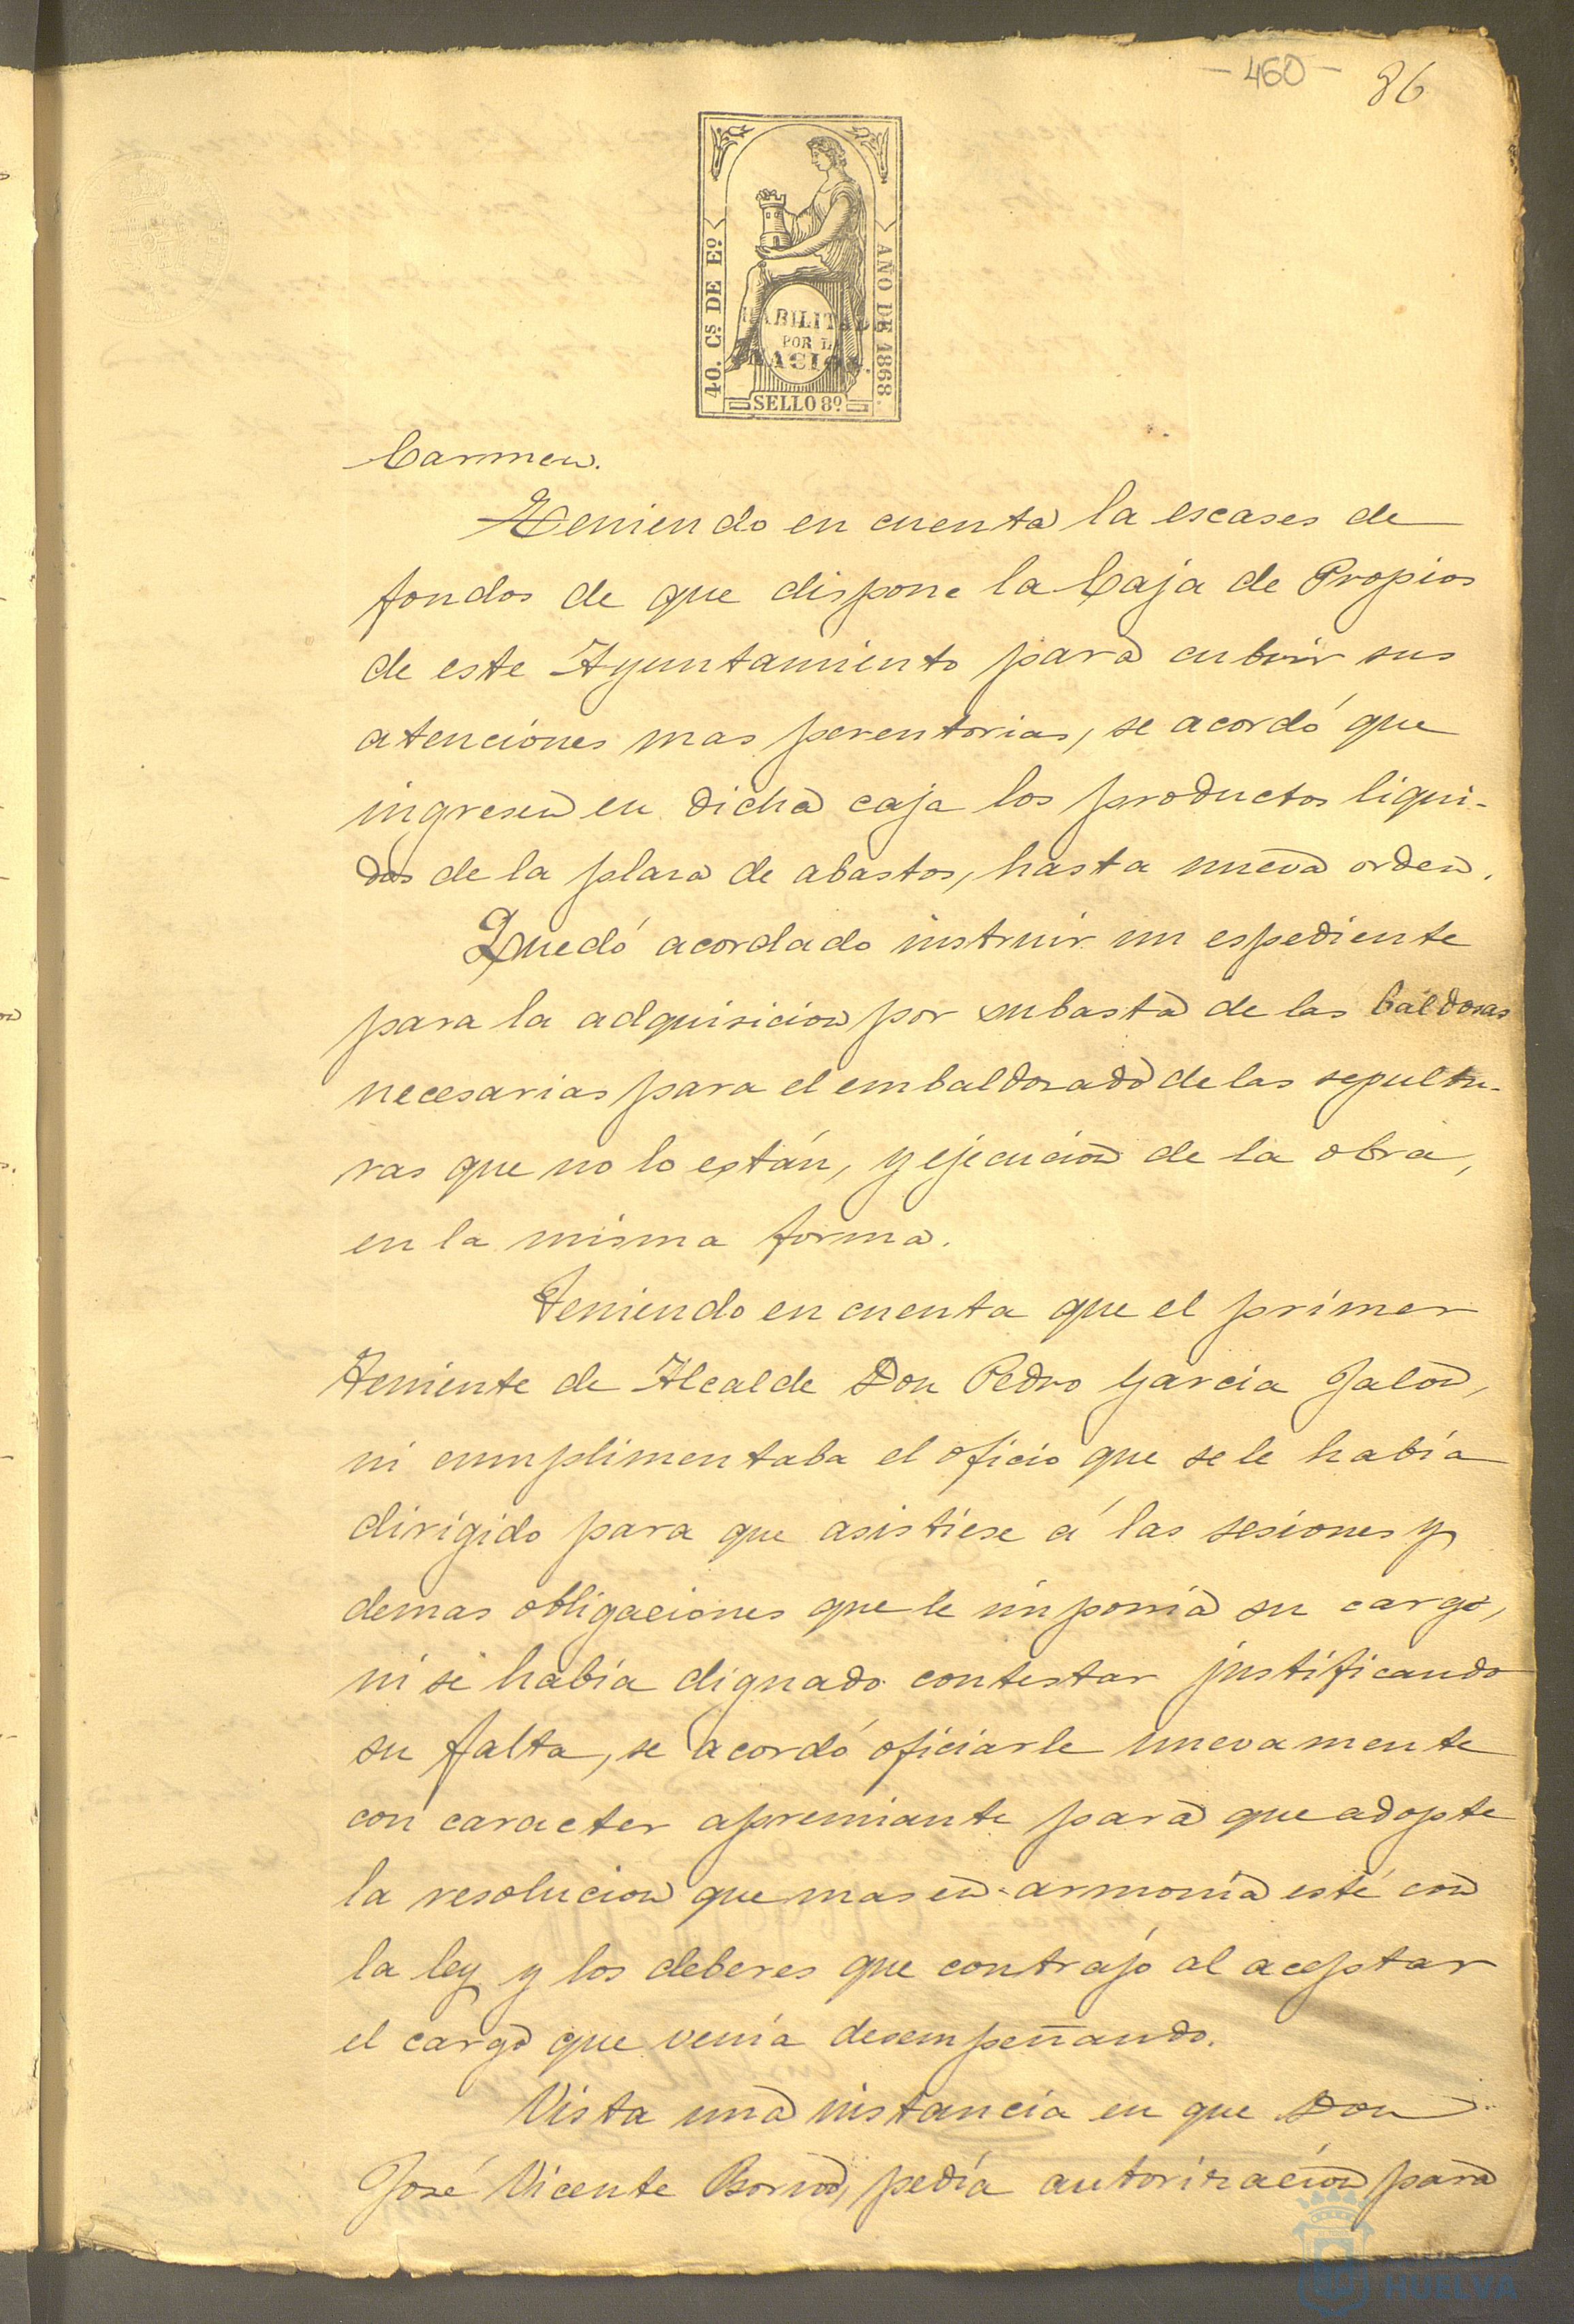 - 460 - 86
40. Cs. DE Eo.
AÑO DE 1868.
HABILITADO
POR LA
NACION.
SELLO 8º
Carmen.
Teniendo en cuenta la escases de
fondos de que dispone la Caja de Propios
de este Ayuntamiento para cubrir sus
atenciones mas perentorias, se acordó que
ingresen en dicha caja los productos liqui-
dos de la plaza de abastos, hasta nueva orden.
Quedó acordado instruir un espediente
para la adquisicion por subasta de las baldosas
necesarias para el embaldosado de las sepultu-
ras que no lo están, y ejecucion de la obra,
en la misma forma.
Teniendo en cuenta que el primer
Teniente de Alcalde Don Pedro Garcia Jalon,
ni cumplimentaba el oficio que se le había
dirigido para que asistiese á las sesiones y
demas obligaciones que le imponia su cargo,
ni se había dignado contestar justificando
su falta, se acordó oficiarle nuevamente
con caracter apremiante para que adopte
la resolucion que mas en armonia esté con
la ley y los deberes que contrajo al aceptar
el cargo que venía desempeñando.
Vista una instancia en que Don
José Vicente pedía autorizacion para
HUELVA